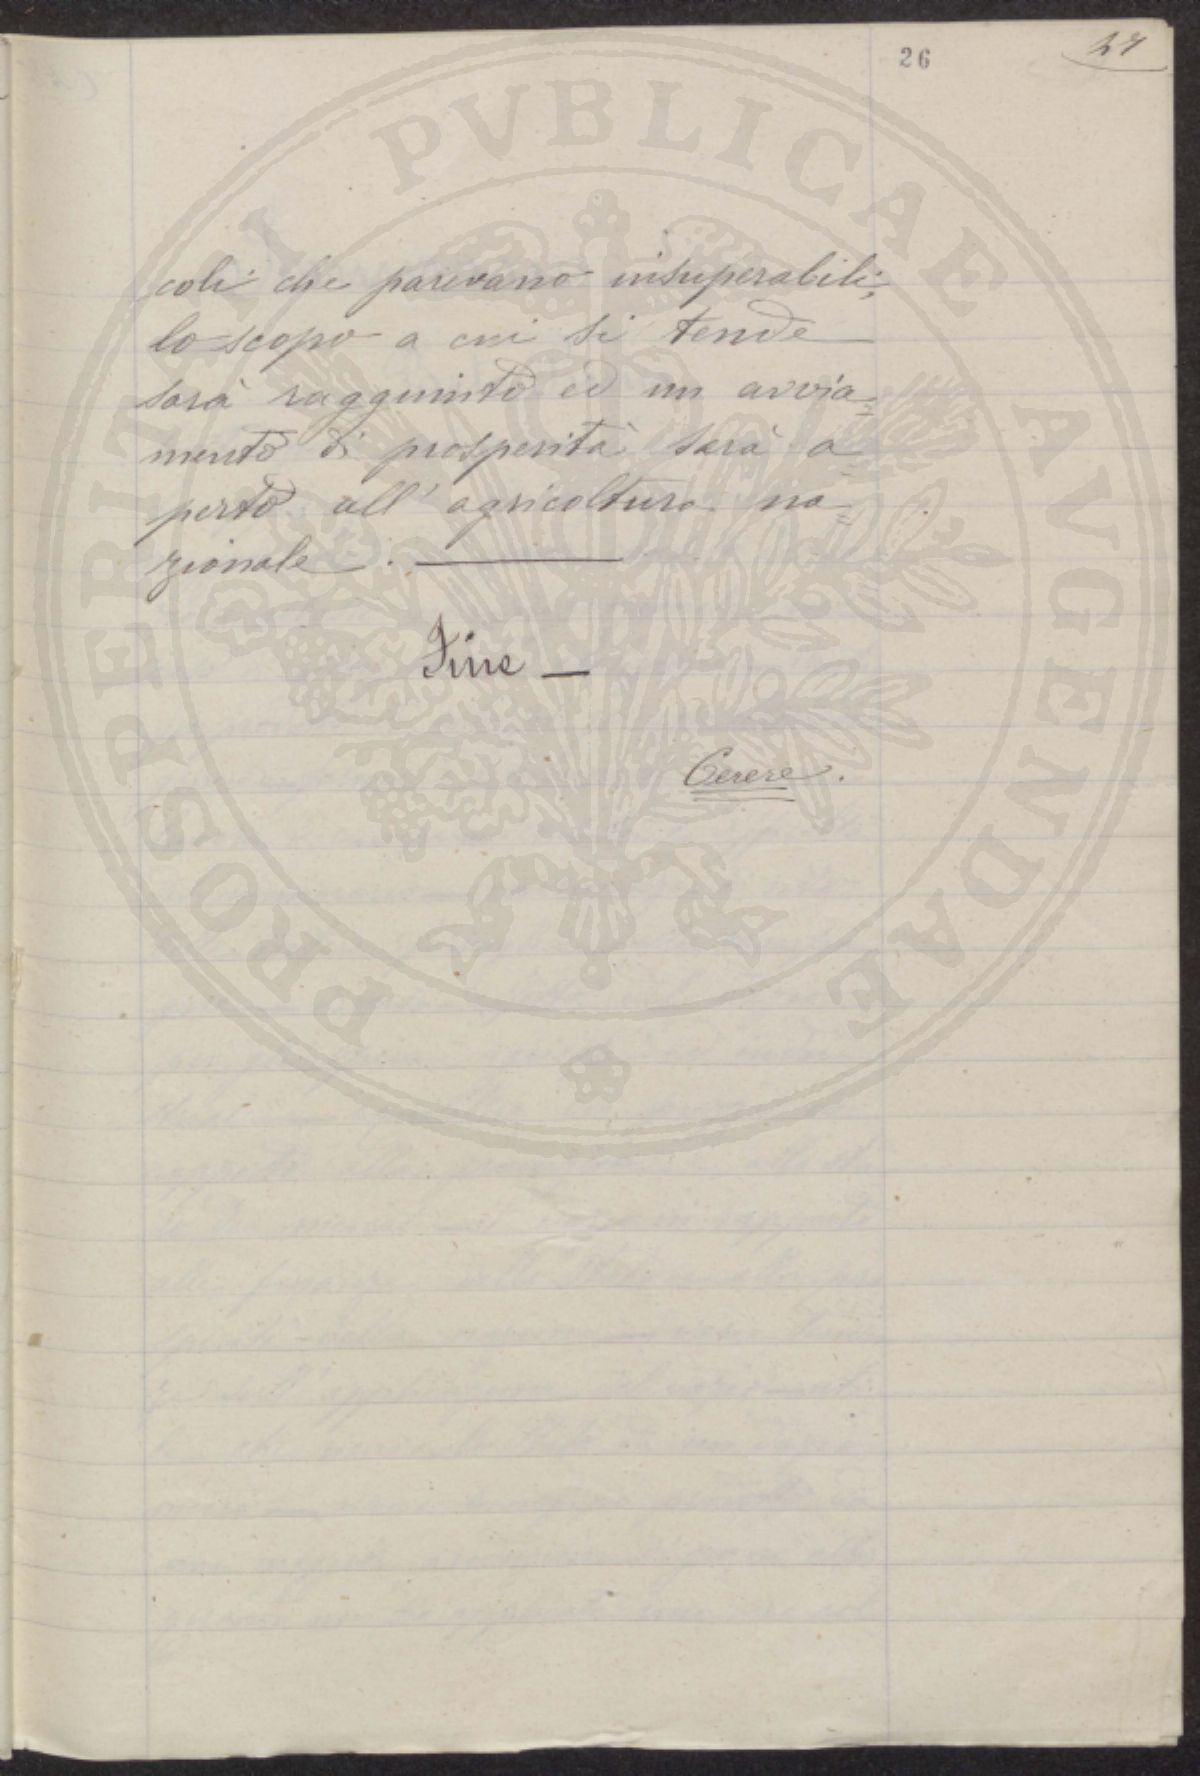 26
27
coli che parevano insuperabili;
lo scopo a cui si tende
sarà raggiunto ed un avvia=
mento di prosperità sarà a=
perto all' agricoltura na=
zionale.
Fine —
Cerere.
PROSPERITATI PVBLICAE AVGENDAE